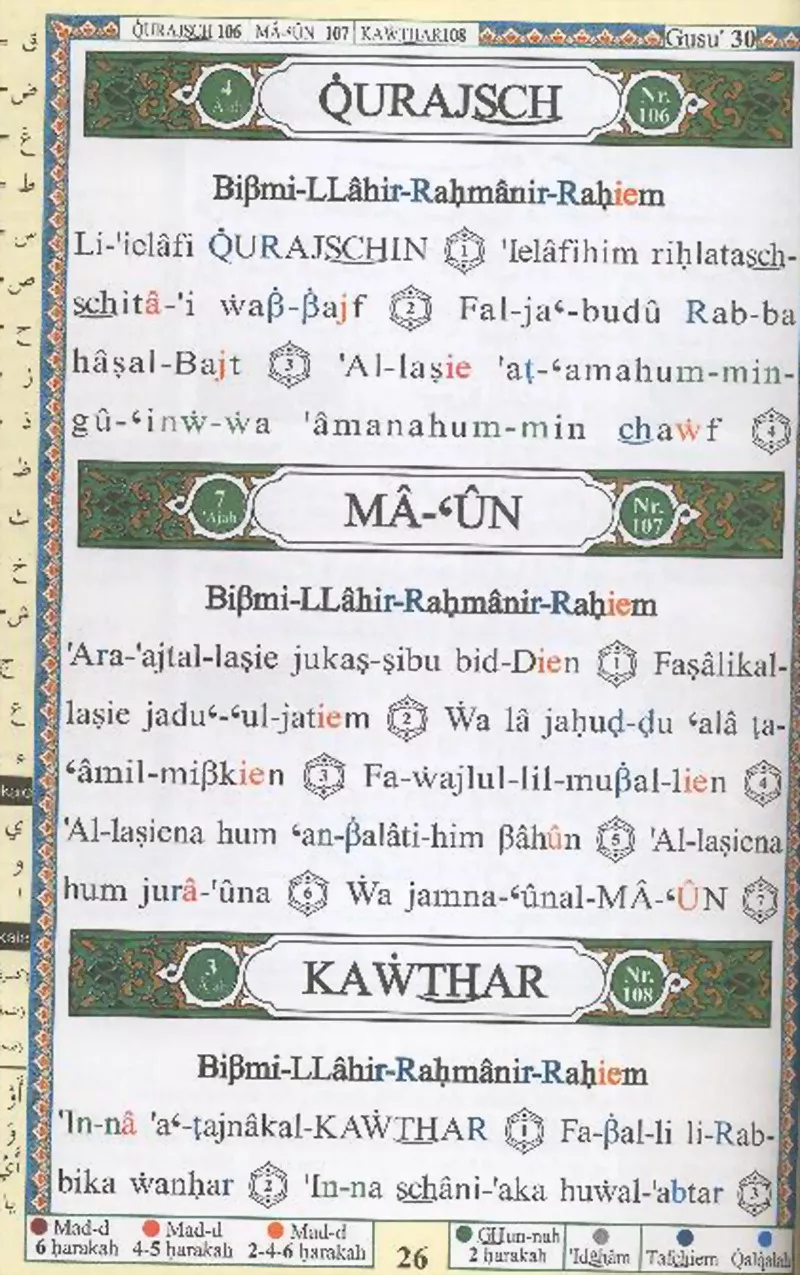 QURAJSCH 106 MÂ-ʻÛN 107 KAẆTHAR108 Gusuʼ 30
4 Q̇URAJSCH Nr. 106
Biβmi-LLâhir-Raḥmânir-Raḥiem
Li-'ielâfi Q̇URAJSCHIN 1 'Ielâfihim riḥlatasch-
schitâ-'i ẇaβ-β̇ajf 2 Fal-jaʻ-budû Rab-ba
hâṣal-Bajt 3 'Al-laṣie 'aṭ-ʻamahum-min-
gû-ʻinẇ-ẇa 'âmanahum-min chaẇf 4
7 'Ajah MÂ-ʻÛN Nr. 107
Biβmi-LLâhir-Raḥmânir-Raḥiem
'Ara-'ajtal-laṣie jukaṣ-ṣibu bid-Dien 1 Faṣâlikal-
laṣie jaduʻ-ʻul-jatiem 2 Ẇa lâ jaḥuḍ-ḍu ʻalâ ṭa-
ʻâmil-miβkien 3 Fa-ẇajlul-lil-muβ̇al-lien 4
'Al-laṣiena hum ʻan-β̇alâti-him βâhûn 5 'Al-laṣiena
hum jurâ-'ûna 6 Ẇa jamna-ʻûnal-MÂ-ʻÛN 7
3 KAẆTHAR Nr. 108
Biβmi-LLâhir-Raḥmânir-Raḥiem
'In-nâ 'aʻ-ṭajnâkal-KAẆTHAR 1 Fa-β̇al-li li-Rab-
bika ẇanḥar 2 'In-na schâni-'aka huẇal-'abtar 3
Mad-d 6 ḥarakah Mad-d 4-5 ḥarakah Mad-d 2-4-6 ḥarakah 26 GHun-nah 2 ḥarakah 'Idghâm Tafchiem Q̇alq̇alah